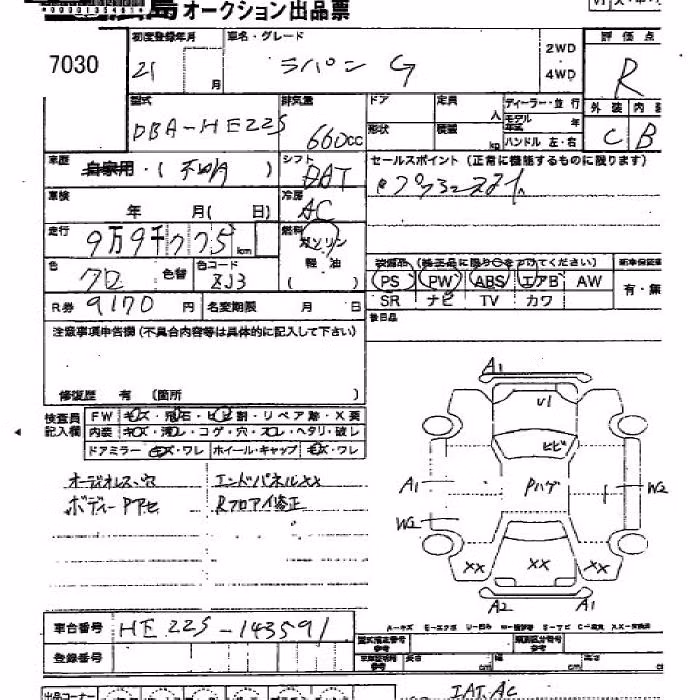 島 オークション出品票
7030
初度登録年月 車名・グレード 評価点
21 月 ラパン G 2WD 4WD R
型式 排気量 ドア 定員 人 ディーラー・並行 外装 内装
DBA-HE22S 660cc 形状 積載 kg モデル年式 年 ハンドル 左・右 C B
車歴 自家用・( 不明 ) シフト DAT セールスポイント (正常に機能するものに限ります)
車検 年 月( 日) 冷房 AC
走行 9万9千775 km 燃料 ガソリン 軽油 ( )
装備品 (純正品に限り○をつけてください)
色 クロ 色替 色コード ZJ3 PS PW ABS エアB AW 有・無
R券 9170 円 名変期限 月 日 SR ナビ TV カワ
後日品
注意事項申告欄 (不具合内容等は具体的に記入して下さい)
修復歴 有 (箇所 )
検査員記入欄 FW キズ・飛石・ヒビ割・リペア跡・X要
内装 キズ・汚レ・コゲ・穴・スレ・ヘタリ・破レ
ドアミラー キズ・ワレ ホイール・キャップ キズ・ワレ
オーディオレス・穴 エンドパネルXX
ボディーPアセ Rフロアイ修正
A1
U1
ヒビ
A1 Pハゲ W2
W2
XX XX XX
A2 A1
車台番号 HE22S-143591
登録番号
出品コーナー